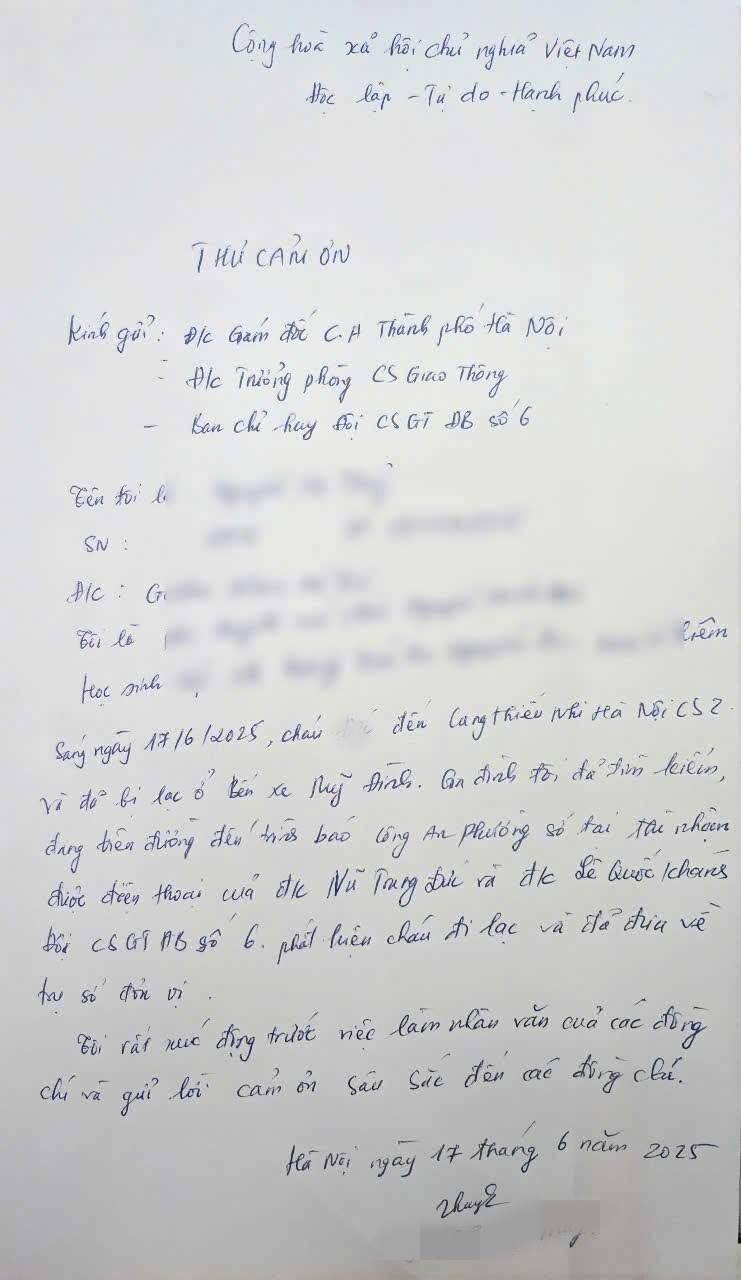 Cộng hoà xã hội chủ nghĩa Việt Nam
Độc lập - Tự do - Hạnh phúc.
THƯ CẢM ƠN
Kính gửi: Đ/c Giám đốc C.A Thành phố Hà Nội
- Đ/c Trưởng phòng CS Giao Thông
- Ban chỉ huy Đội CSGT ĐB số 6
Tên tôi
SN :
Đ/C :
Tôi là
Học sinh
Sáng ngày 17/6/2025, cháu đến Cung thiếu Nhi Hà Nội CS2.
và đã bị lạc ở Bến xe Mỹ Đình. Gia đình tôi đã tìm kiếm,
đang trên đường đến trình báo Công An phường sở tại thì nhận
được điện thoại của đ/c Vũ Trung Đức và đ/c Lê Quốc Khánh
Đội CSGT ĐB số 6. phát hiện cháu đi lạc và đã đưa về
trụ sở đơn vị.
Tôi rất xúc động trước việc làm nhân văn của các đồng
chí và gửi lời cảm ơn sâu sắc đến các đồng chí.
Hà Nội ngày 17 tháng 6 năm 2025